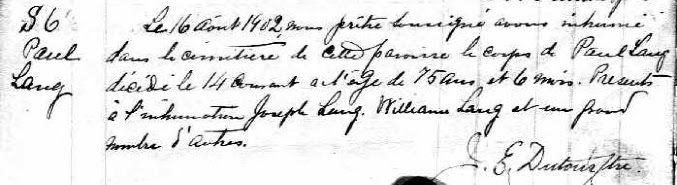 S 6
Paul
Lang
Le 16 Août 1902, nous prêtre soussigné avons inhumé
dans le cimitière de cette paroisse le corps de Paul Lang
décédé le 14 courant a l'âge de 75 ans et 6 mois. Presents
à l'inhumation Joseph Lang. William Lang et un grand
nombre d'autres.
J. E. Dutour, Ptre.